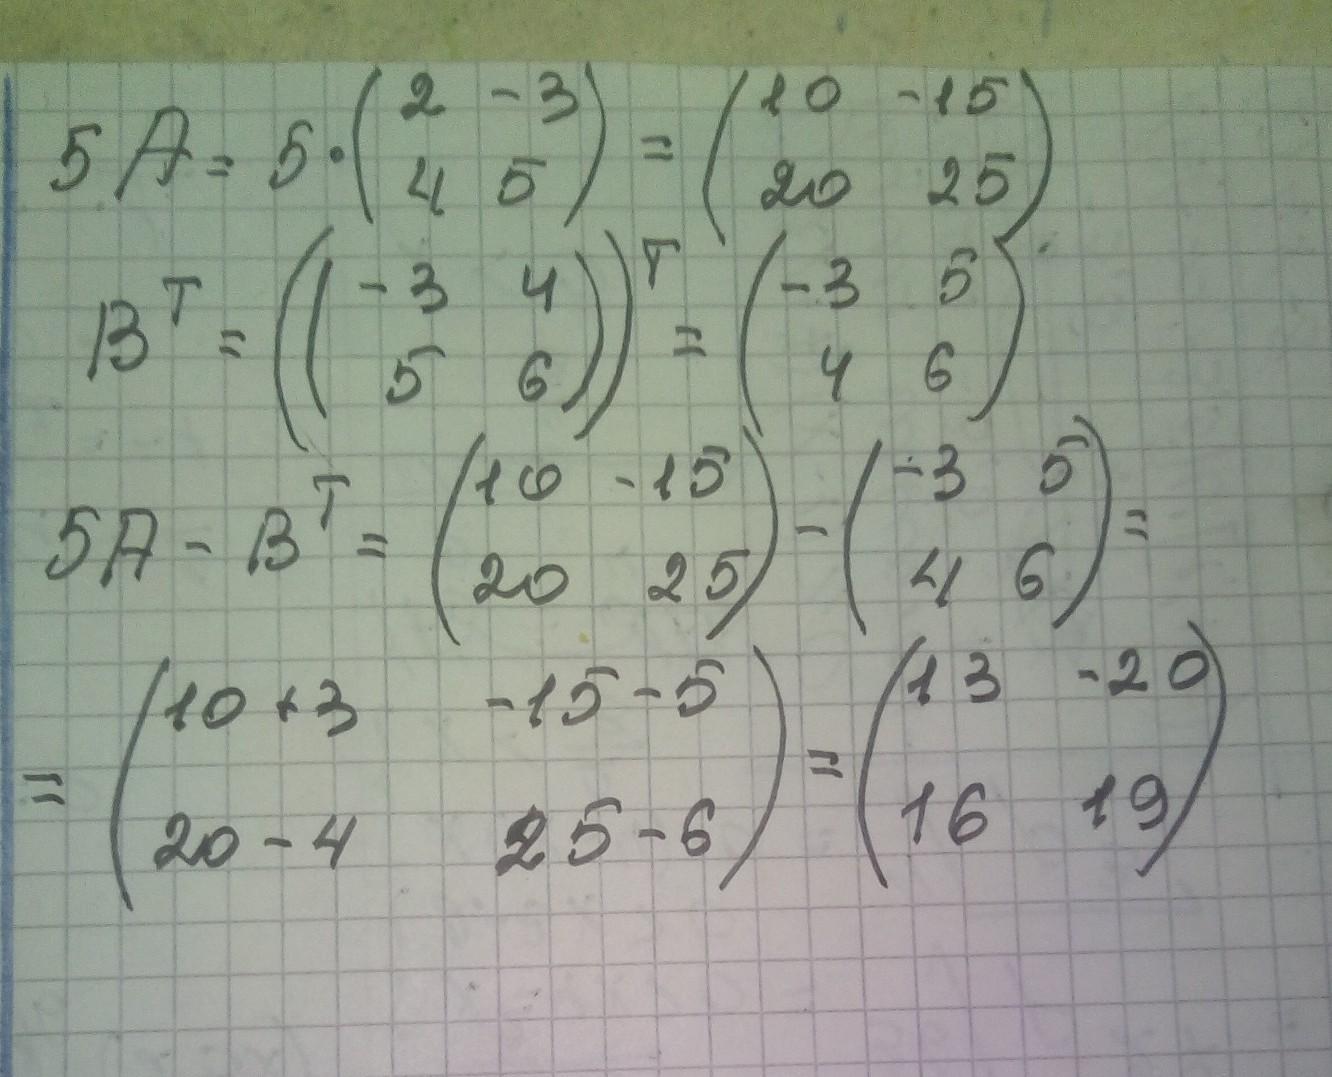 5A = 5·(2 -3; 4 5) = (10 -15; 20 25)
B^T = ((-3 4; 5 6))^T = (-3 5; 4 6)
5A - B^T = (10 -15; 20 25) - (-3 5; 4 6) =
= (10+3 -15-5; 20-4 25-6) = (13 -20; 16 19)